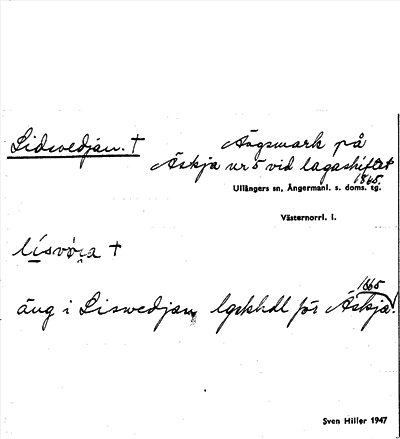 Lidsvedjan. †
Ängsmark på
Äskja nr 5 vid lagaskiftet
1865.
Ullångers sn, Ångermanl. s. doms. tg.
Västernorrl. l.
lísvø̜ra †
1865
äng i Liswedjan lgskhdl för Äskja.
Sven Hiller 1947